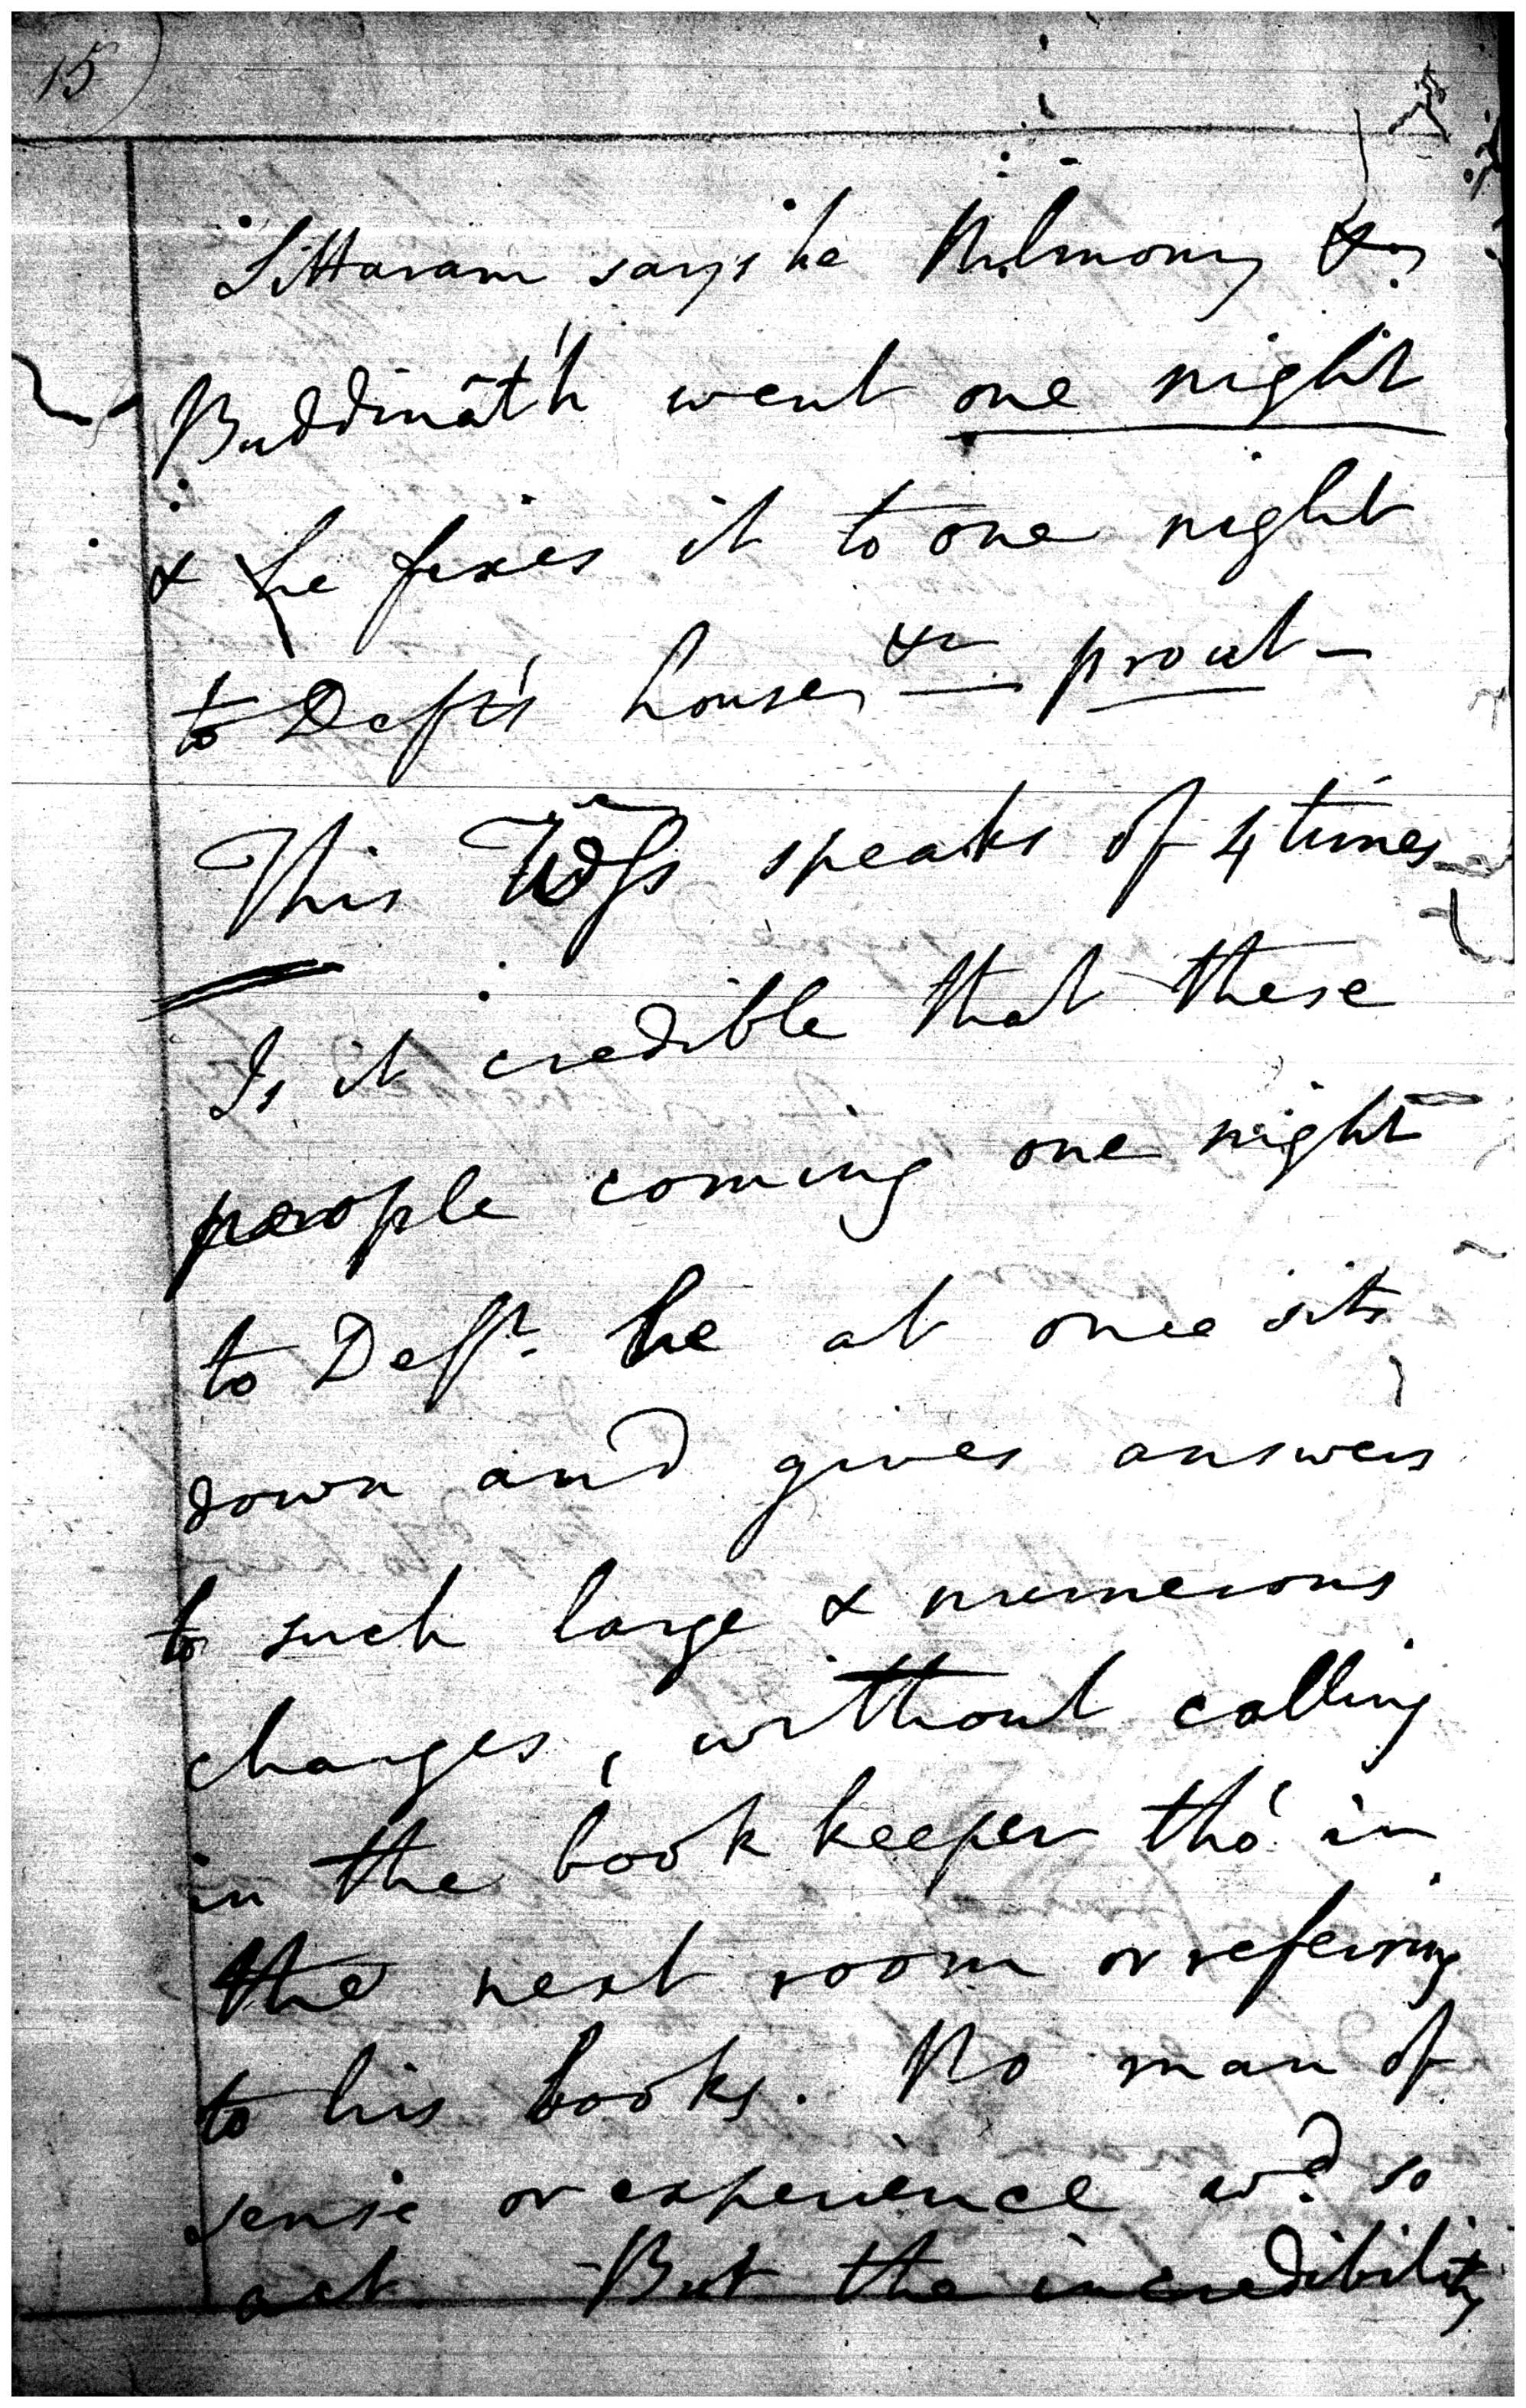 15)
Sittaram says he Nilmony &
Buddinâth went one night
& he fixes it to one night
to Deft's house &c prout –
This Wss speaks of 4 times
Is it credible that these
people coming one night
to Deft. he at once sits
down and gives answers
to such large & numerous
charges, without calling
in the book keeper tho' in
the next room or referring
to his books. No man of
sense or experience wd. so
act. – But the incredibility